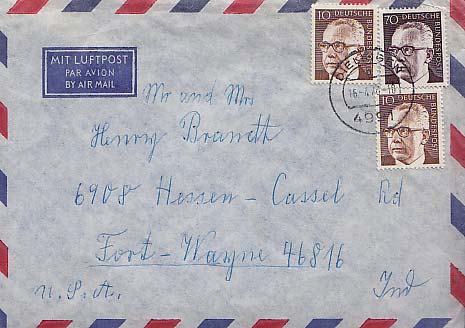 MIT LUFTPOST
PAR AVION
BY AIR MAIL
10 DEUTSCHE BUNDESPOST
70 DEUTSCHE BUNDESPOST
10 DEUTSCHE BUNDESPOST
Mr and Mrs
Henry Brandt
6908 Hessen-Cassel Rd
Fort-Wayne 46816
U.S.A. Ind